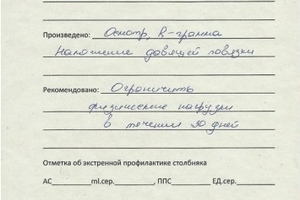 Произведено: Осмотр, R-грамма
Наложение давящей повязки
Рекомендовано: Ограничить
физические нагрузки
в течении 30 дней
Отметка об экстренной профилактике столбняка
АС_________ml.сер.__________, ППС__________ЕД.сер.__________